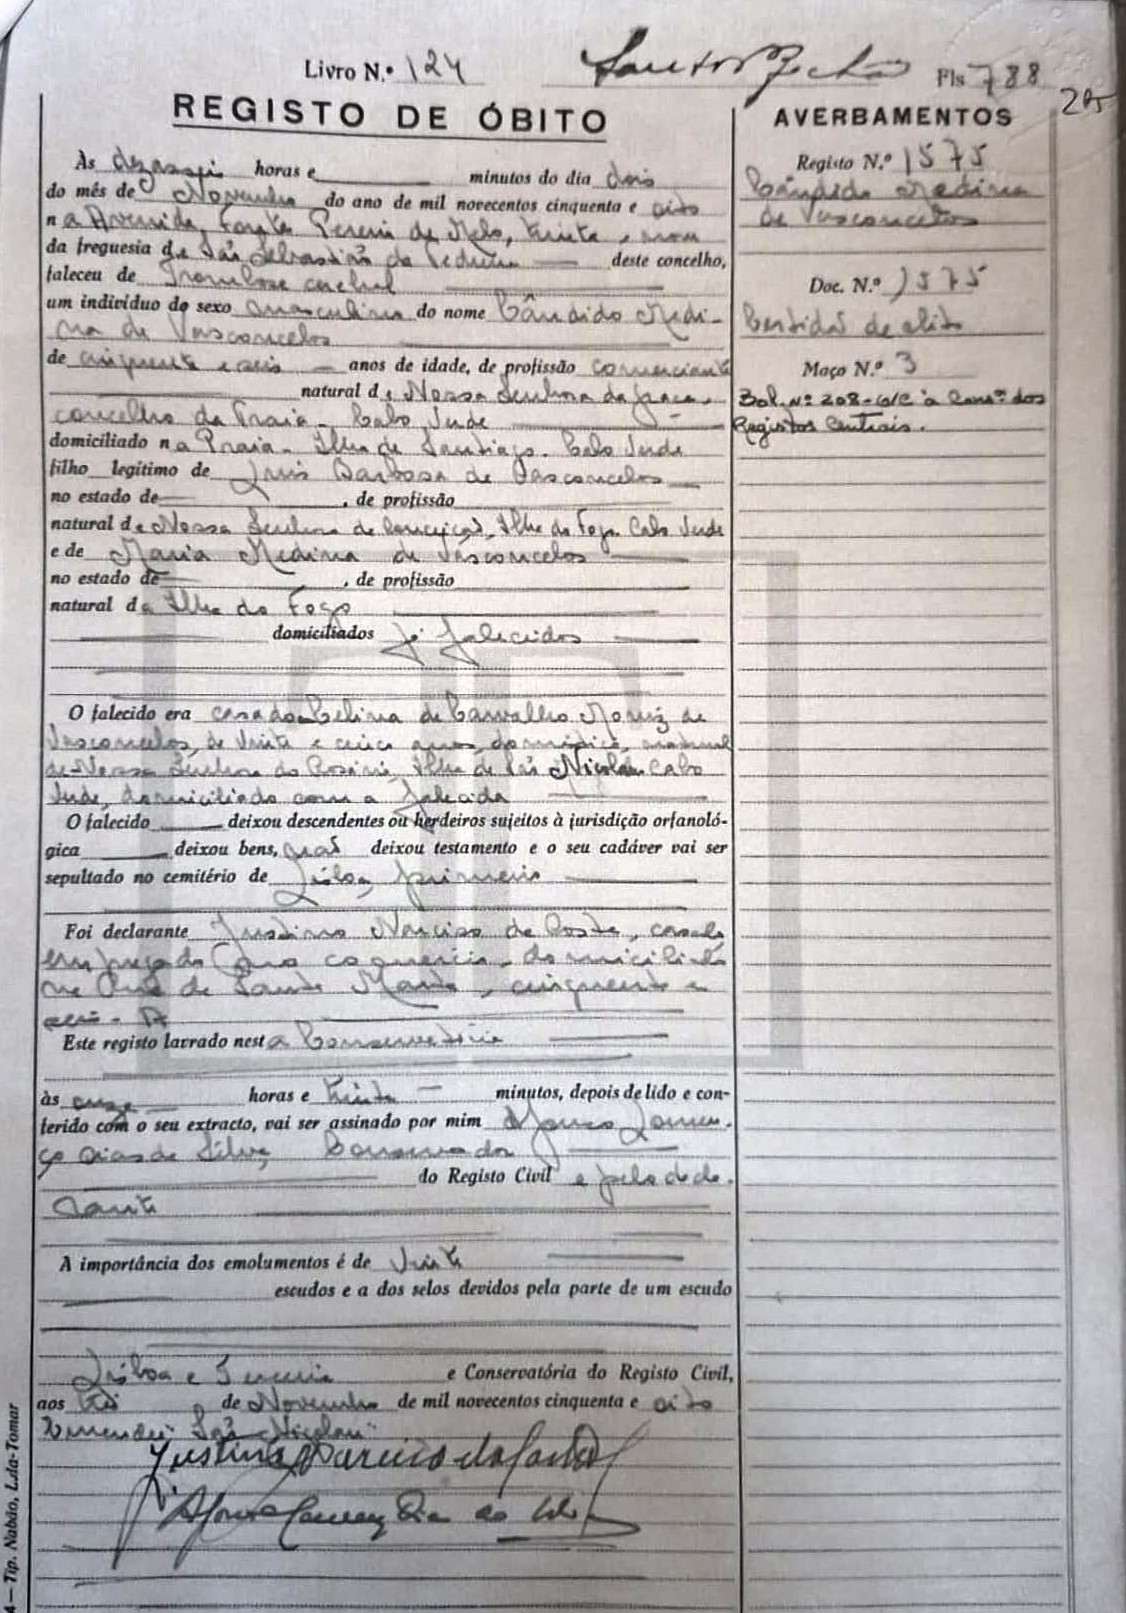 Livro N.º 124
Fls 788
205
REGISTO DE ÓBITO
Às dezasseis horas e minutos do dia dois
do mês de Novembro do ano de mil novecentos cinquenta e oito
n a Avenida Fontes Pereira de Melo, trinta,
da freguesia de São Sebastião da Pedreira deste concelho,
faleceu de Trombose cerebral
um indivíduo do sexo masculino do nome Cândido Medi-
na de Vasconcelos
de cinquenta e seis anos de idade, de profissão comerciante
natural de Nossa Senhora da Graça,
concelho da Praia - Cabo Verde
domiciliado n a Praia - Ilha de Santiago. Cabo Verde
filho legítimo de Luís Barbosa de Vasconcelos
no estado de , de profissão
natural de Nossa Senhora da Conceição, Ilha do Fogo Cabo Verde
e de Maria Medina de Vasconcelos
no estado de , de profissão
natural da Ilha do Fogo
domiciliados já falecidos
O falecido era casado Celina de Carvalho Moniz de
Vasconcelos, de vinte e cinco anos, doméstica, natural
de Nossa Senhora do Rosário, Ilha de São Nicolau Cabo
Verde, domiciliado com a falecida
O falecido deixou descendentes ou herdeiros sujeitos à jurisdição orfanoló-
gica deixou bens, não deixou testamento e o seu cadáver vai ser
sepultado no cemitério de Lisboa, primeiro
Foi declarante Justino Narciso da Costa, casado
empregado no comércio, domiciliado
na Rua de Santa Marta, cinquenta e
seis - A
Este registo lavrado nest a Conservatória
às onze horas e trinta minutos, depois de lido e con-
ferido com o seu extracto, vai ser assinado por mim Afonso Louren-
ço Dias da Silva, Conservador
do Registo Civil e pelo decla-
rante
A importância dos emolumentos é de vinte
escudos e a dos selos devidos pela parte de um escudo
Lisboa e Terceira e Conservatória do Registo Civil,
aos três de Novembro de mil novecentos cinquenta e oito
Emendei: "São Nicolau"
Justino Narciso da Costa
Afonso Lourenço Dias da Silva
AVERBAMENTOS
Registo N.º 1575
Cândido Medina
de Vasconcelos
Doc. N.º 1575
Certidão de óbito
Maço N.º 3
Bol. Nº 208-6/C à Consª dos
Registos Centrais.
4 — Tip. Nabão, L.da-Tomar